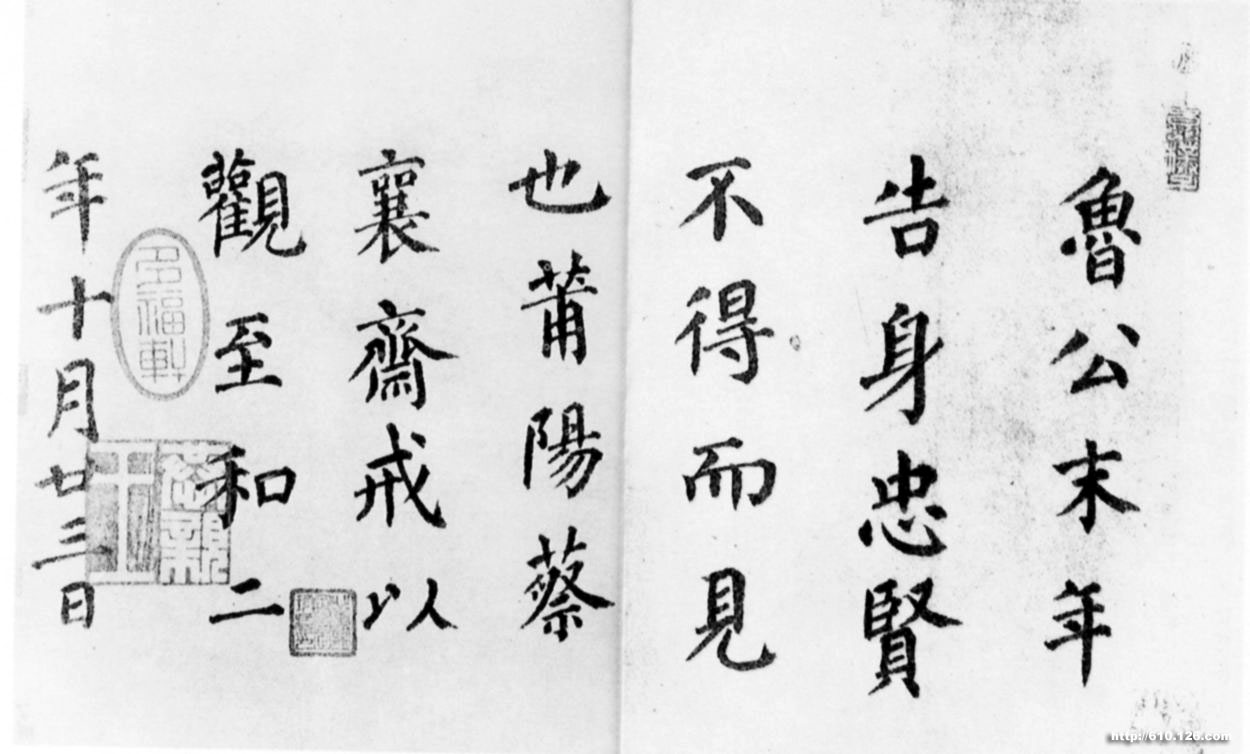 魯公末年
告身忠賢
不得而見
也莆陽蔡
襄齋戒以
觀至和二
年十月廿三日
多福軒
http://610.126.com